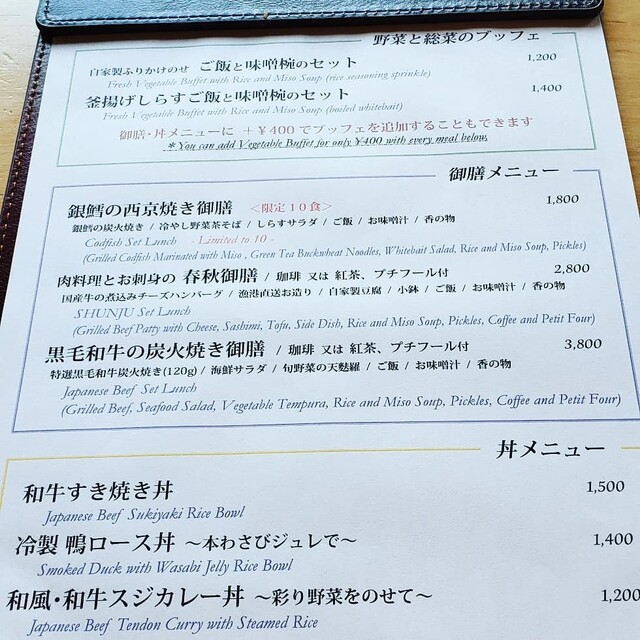 野菜と総菜のブッフェ
自家製ふりかけのせ ご飯と味噌椀のセット 1,200
Fresh Vegetable Buffet with Rice and Miso Soup (rice seasoning sprinkle)
釜揚げしらすご飯と味噌椀のセット 1,400
Fresh Vegetable Buffet with Rice and Miso Soup (boiled whitebait)
御膳・丼メニューに +￥400でブッフェを追加することもできます
*You can add Vegetable Buffet for only ¥400 with every meal below.
御膳メニュー
銀鱈の西京焼き御膳 ＜限定10食＞ 1,800
銀鱈の炭火焼き / 冷やし野菜茶そば / しらすサラダ / ご飯 / お味噌汁 / 香の物
Codfish Set Lunch - Limited to 10 -
(Grilled Codfish Marinated with Miso , Green Tea Buckwheat Noodles, Whitebait Salad, Rice and Miso Soup, Pickles)
肉料理とお刺身の 春秋御膳 / 珈琲 又は 紅茶、プチフール付 2,800
国産牛の煮込みチーズハンバーグ / 漁港直送お造り / 自家製豆腐 / 小鉢 / ご飯 / お味噌汁 / 香の物
SHUNJU Set Lunch
(Grilled Beef Patty with Cheese, Sashimi, Tofu, Side Dish, Rice and Miso Soup, Pickles, Coffee and Petit Four)
黒毛和牛の炭火焼き御膳 / 珈琲 又は 紅茶、プチフール付 3,800
特選黒毛和牛炭火焼き(120g) / 海鮮サラダ / 旬野菜の天麩羅 / ご飯 / お味噌汁 / 香の物
Japanese Beef Set Lunch
(Grilled Beef, Seafood Salad, Vegetable Tempura, Rice and Miso Soup, Pickles, Coffee and Petit Four)
丼メニュー
和牛すき焼き丼 1,500
Japanese Beef Sukiyaki Rice Bowl
冷製 鴨ロース丼 ～本わさびジュレで～ 1,400
Smoked Duck with Wasabi Jelly Rice Bowl
和風・和牛スジカレー丼 ～彩り野菜をのせて～ 1,200
Japanese Beef Tendon Curry with Steamed Rice